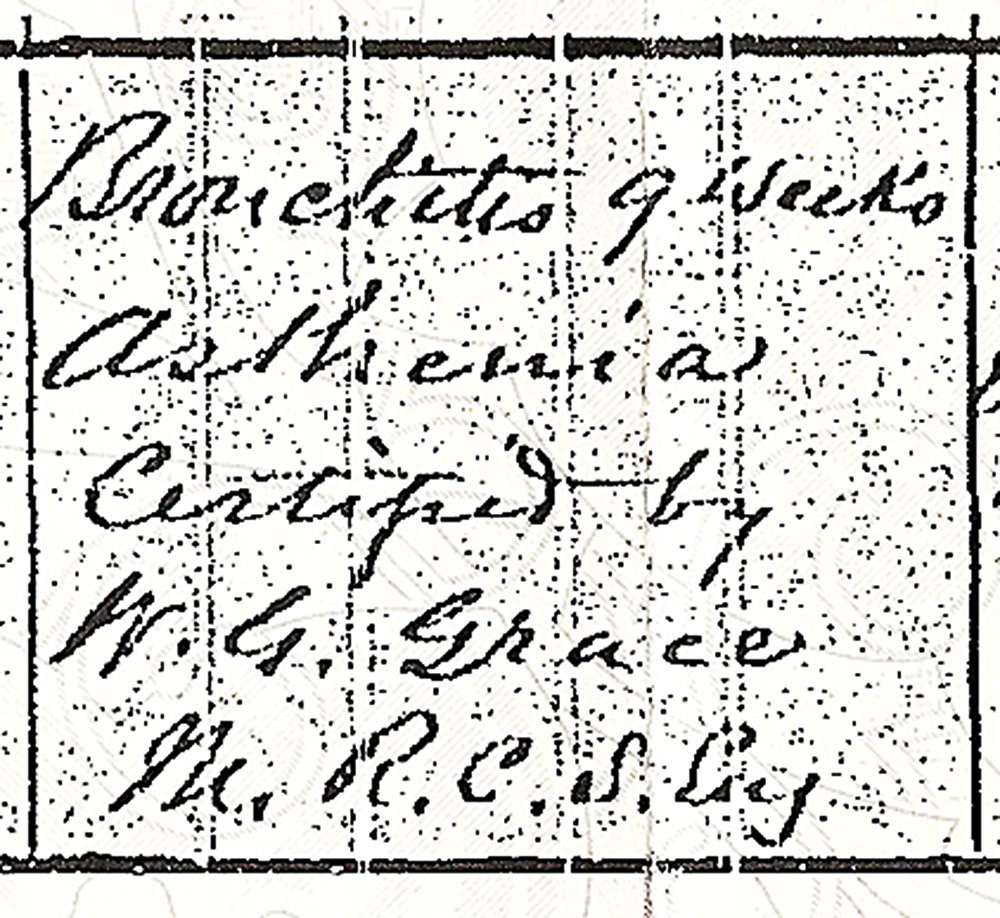 Bronchitis 9 weeks
Asthenia
Certified by
W. G. Grace
M. R. C. S. Eng